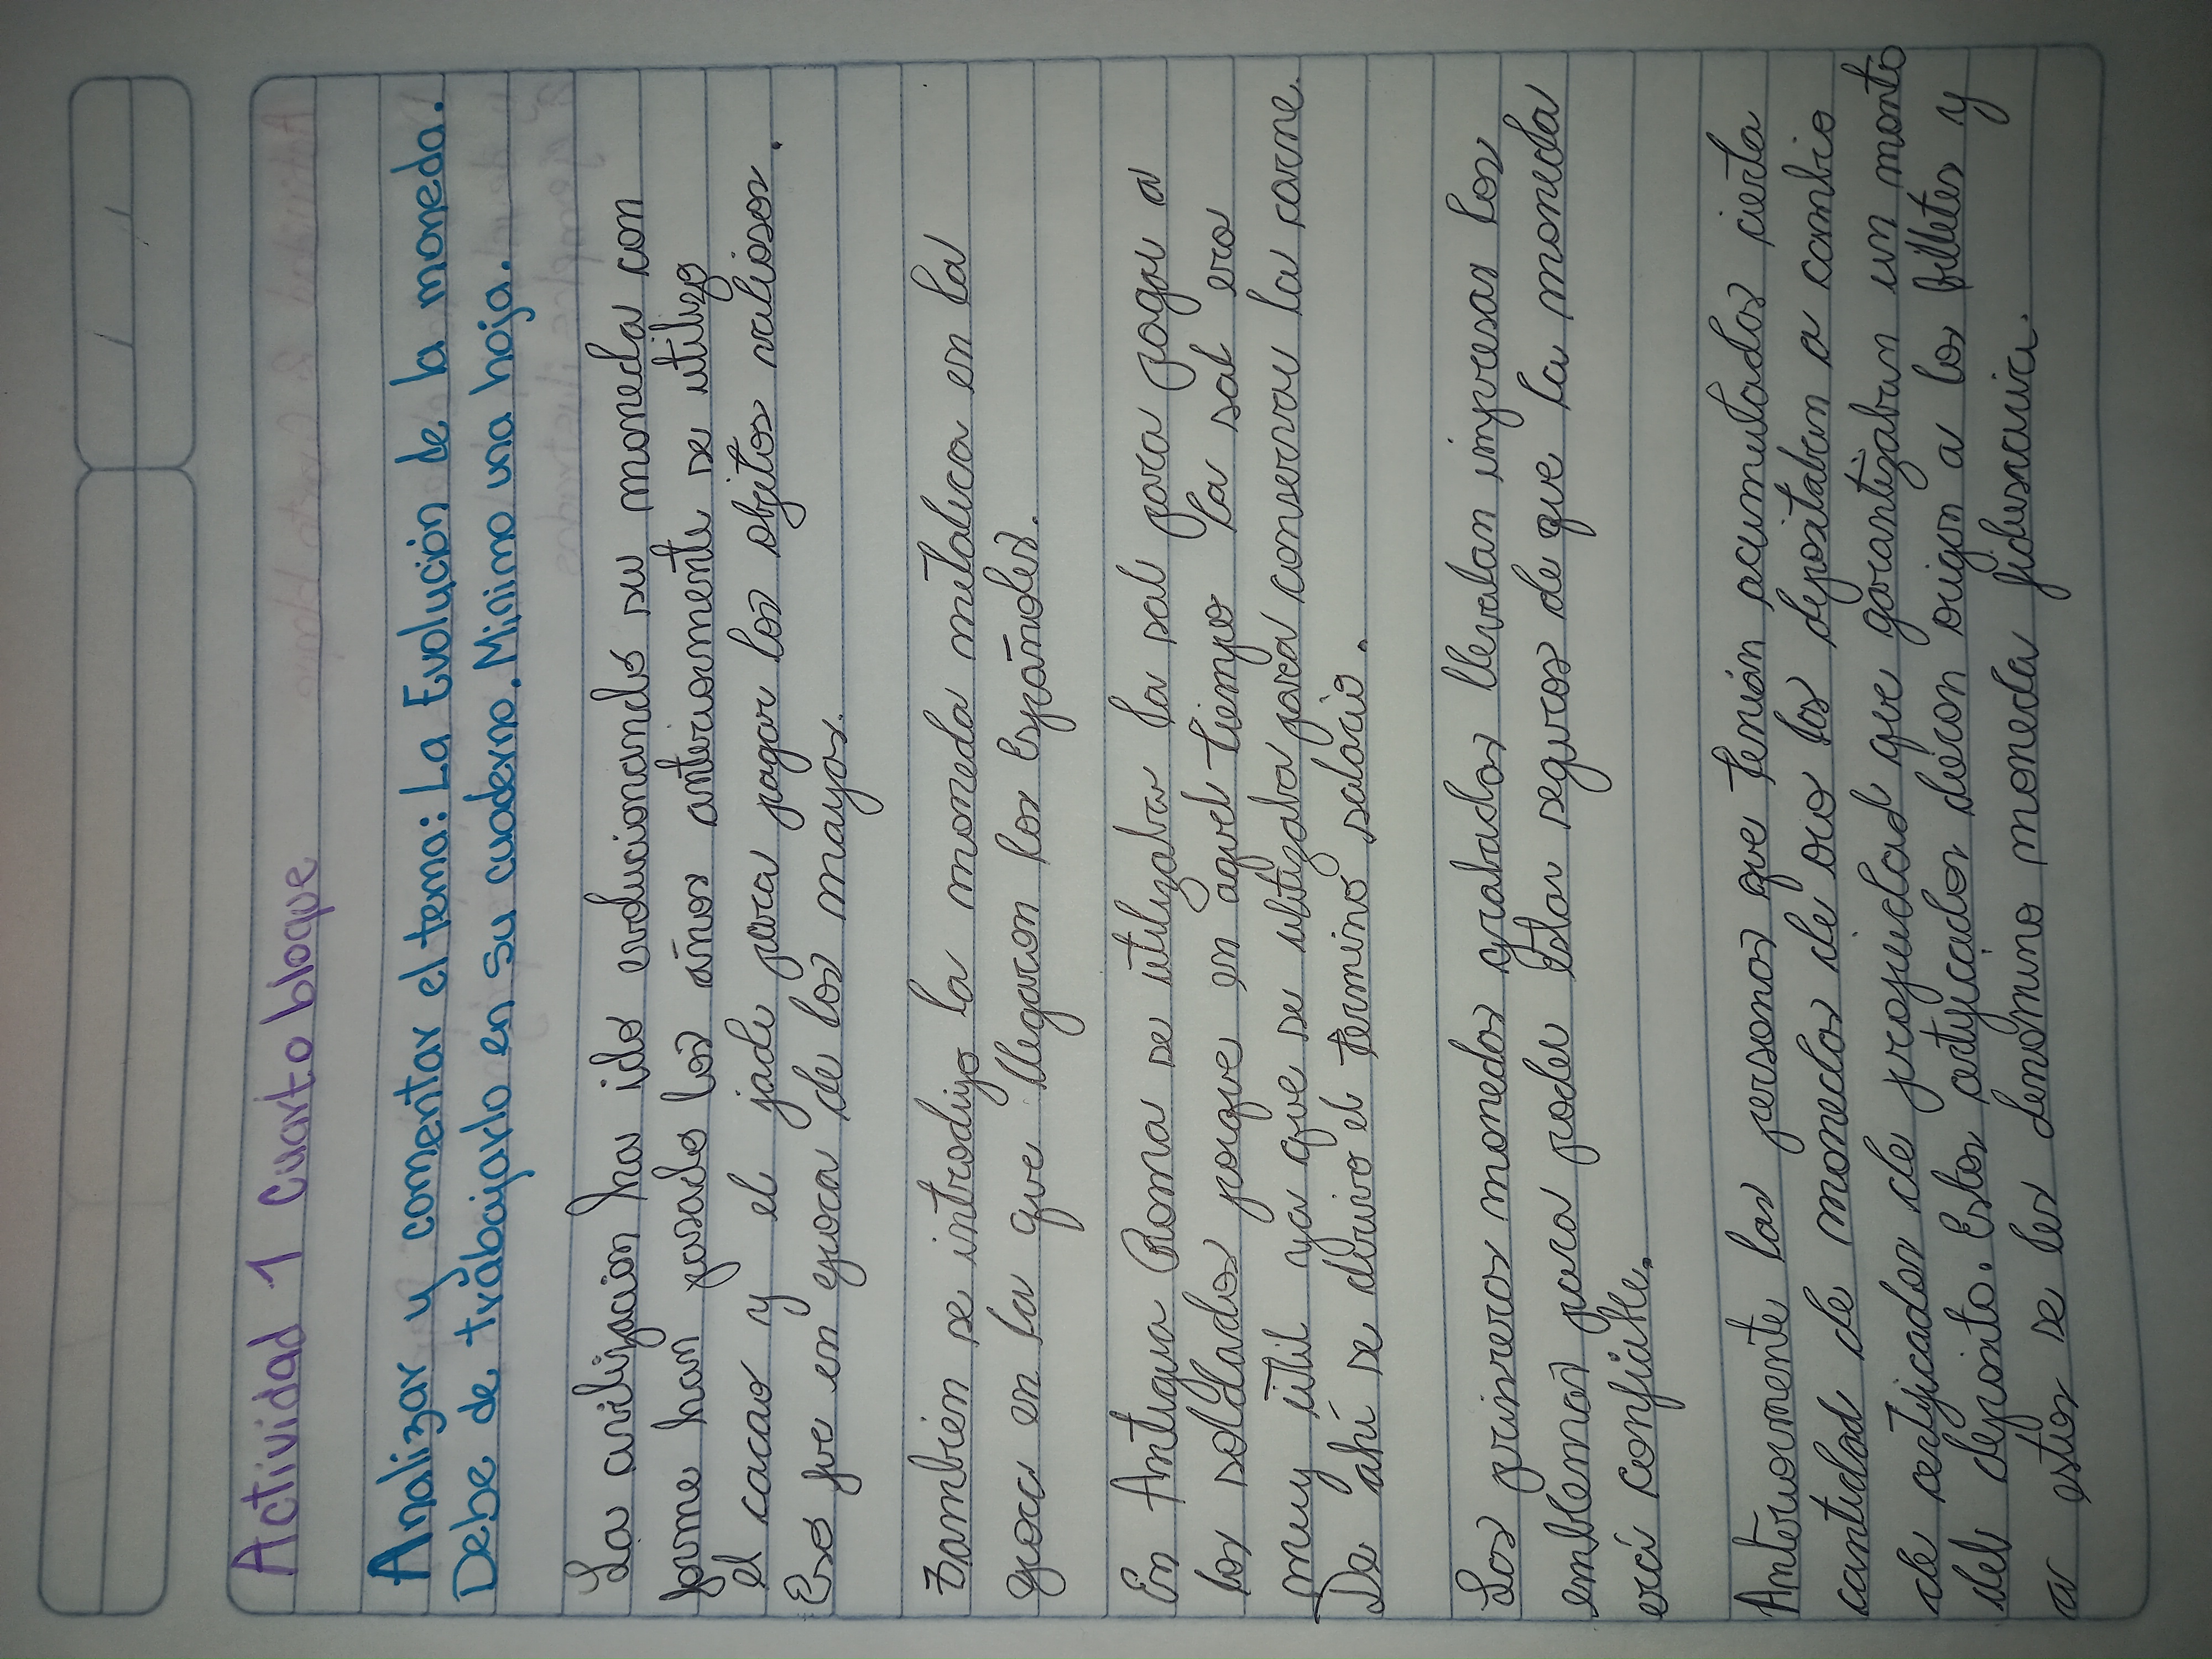 Actividad 1 Cuarto bloque
Analizar y comentar el tema: La Evolución de la moneda.
Debe de trábajarlo en su cuaderno. Minimo una hoja.
La civilización ha ido evolucionando su moneda con
forme han pasado los años anteriormente se utilizo
el cacao y el jade para pagar los objetos valiosos.
Eso fue en epoca de los mayas.
Tambien se introdujo la moneda metalica en la
epoca en la que llegaron los españoles.
En Antigua Roma se utilizaba la sal para pagar a
los soldados porque en aquel tiempo la sal era
muy útil ya que se utilizaba para conservar la carne.
De ahí se derivo el termino salario.
Las primeras monedas grabadas llevaban impresas los
emblemas para poder estar seguros de que la moneda
era confiable.
Anteriormente las personas que tenían acumulados cierta
cantidad de monedas de oro los depositaban a cambio
de certificados de propiedad que garantizaban un monto
del deposito. Estos certificados dieron origen a los billetes y
a estos se les denomino moneda fiduciaria.